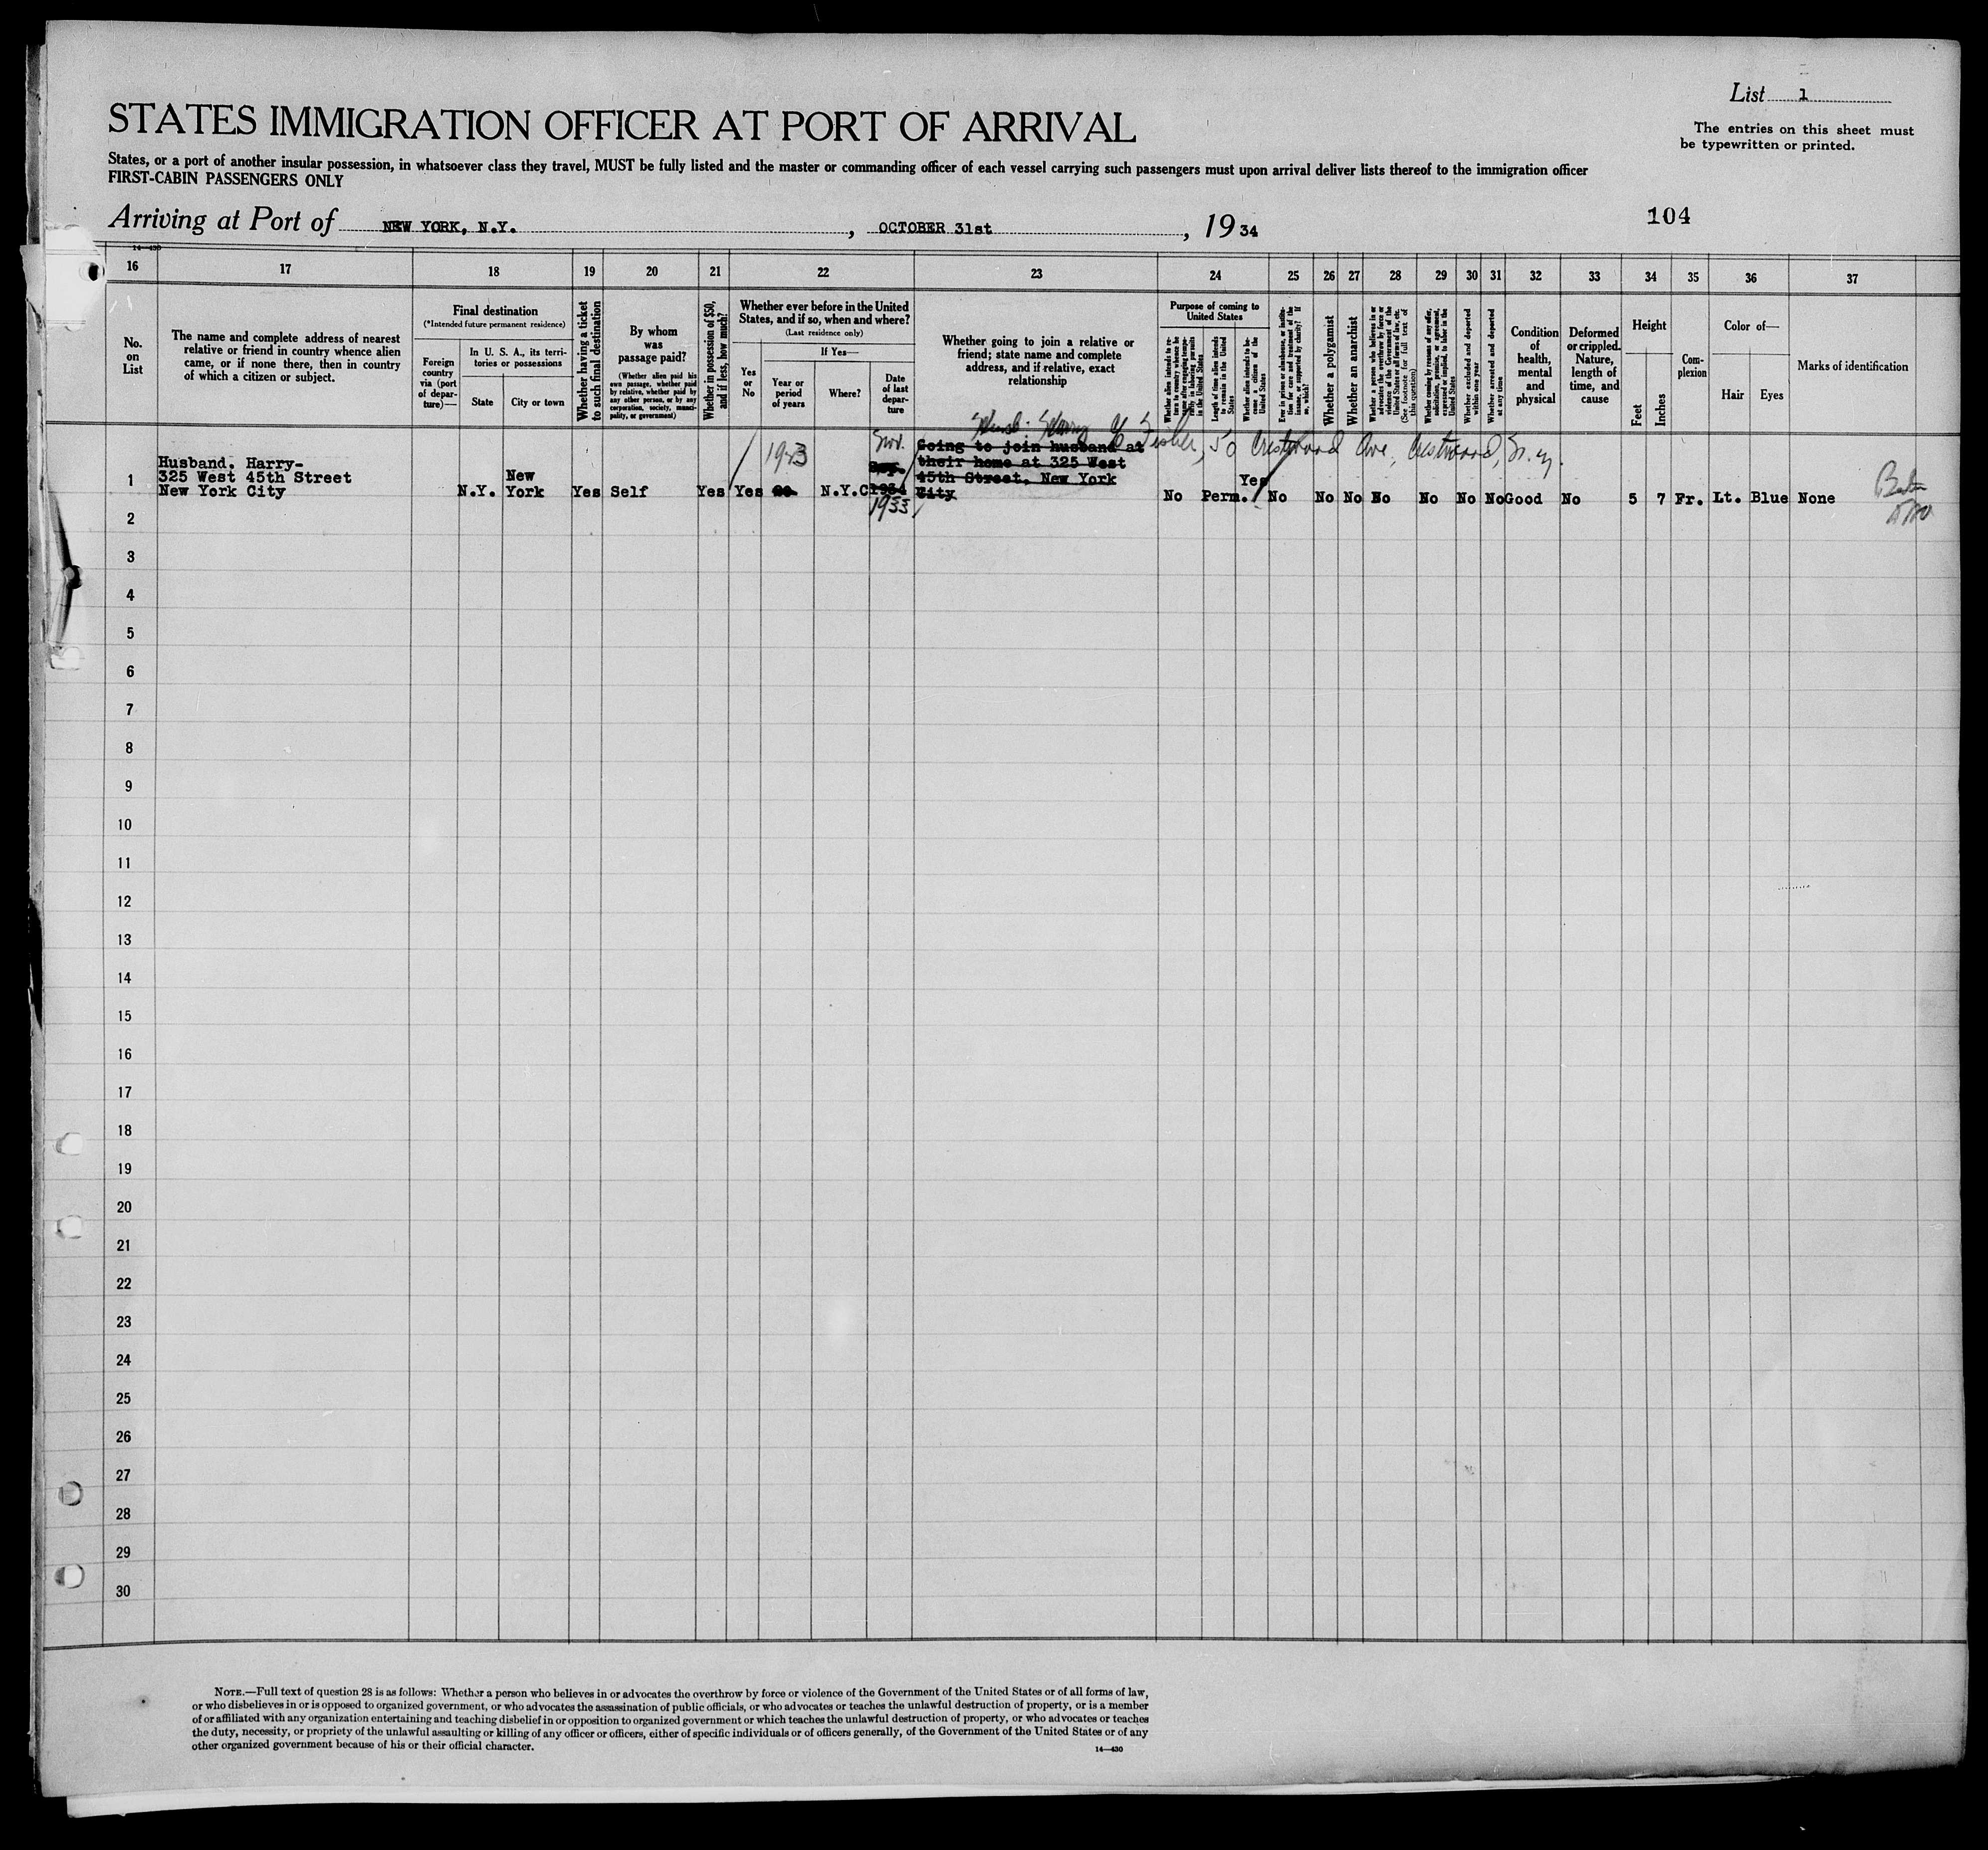 List 1
The entries on this sheet must
be typewritten or printed.
STATES IMMIGRATION OFFICER AT PORT OF ARRIVAL
States, or a port of another insular possession, in whatsoever class they travel, MUST be fully listed and the master or commanding officer of each vessel carrying such passengers must upon arrival deliver lists thereof to the immigration officer
FIRST-CABIN PASSENGERS ONLY
Arriving at Port of NEW YORK, N.Y., OCTOBER 31st, 1934
104
14—430
16 17 18 19 20 21 22 23 24 25 26 27 28 29 30 31 32 33 34 35 36 37
No.
on
List
The name and complete address of nearest
relative or friend in country whence alien
came, or if none there, then in country
of which a citizen or subject.
Final destination
(*Intended future permanent residence)
Foreign
country
via (port
of depar-
ture)—
In U. S. A., its terri-
tories or possessions
State
City or town
Whether having a ticket
to such final destination
By whom
was
passage paid?
(Whether alien paid his
own passage, whether paid
by relative, whether paid by
any other person, or by any
corporation, society, munici-
pality, or government)
Whether in possession of $50,
and if less, how much?
Whether ever before in the United
States, and if so, when and where?
(Last residence only)
Yes
or
No
If Yes—
Year or
period
of years
Where?
Date
of last
depar-
ture
Whether going to join a relative or
friend; state name and complete
address, and if relative, exact
relationship
Purpose of coming to
United States
Length of time alien intends
to remain in the United
States
Whether alien intends to be-
come a citizen of the
United States
Ever in prison or almshouse, or institu-
tion for care and treatment of the
insane, or supported by charity? If
so, which?
Whether a polygamist
Whether an anarchist
Whether a person who believes in or
advocates the overthrow by force or
violence of the Government of the
United States or all forms of law, etc.
(See footnote for full text of
this question)
Whether coming by reason of any offer,
solicitation, promise, or agreement,
expressed or implied, to labor in the
United States
Whether excluded and deported
within one year
Whether arrested and deported
at any time
Condition
of
health,
mental
and
physical
Deformed
or crippled.
Nature,
length of
time, and
cause
Height
Feet
Inches
Com-
plexion
Color of—
Hair
Eyes
Marks of identification
Husb. Harry G Fisher, 50 Crestwood Ave, Crestwood, N.Y.
1
Husband. Harry-
325 West 45th Street
New York City
N.Y.
New
York
Yes
Self
Yes
Yes
1923
N.Y.C
Nov.
1934
1933
Going to join husband at
their home at 325 West
45th Street, New York
City
No
Perm.
Yes
No
No
No
No
No
No
No
Good
No
5
7
Fr.
Lt.
Blue
None
2
3
4
5
6
7
8
9
10
11
12
13
14
15
16
17
18
19
20
21
22
23
24
25
26
27
28
29
30
NOTE.—Full text of question 28 is as follows: Whether a person who believes in or advocates the overthrow by force or violence of the Government of the United States or of all forms of law,
or who disbelieves in or is opposed to organized government, or who advocates the assassination of public officials, or who advocates or teaches the unlawful destruction of property, or is a member
of or affiliated with any organization entertaining and teaching disbelief in or opposition to organized government or which teaches the unlawful destruction of property, or who advocates or teaches
the duty, necessity, or propriety of the unlawful assaulting or killing of any officer or officers, either of specific individuals or of officers generally, of the Government of the United States or of any
other organized government because of his or their official character.
14—430